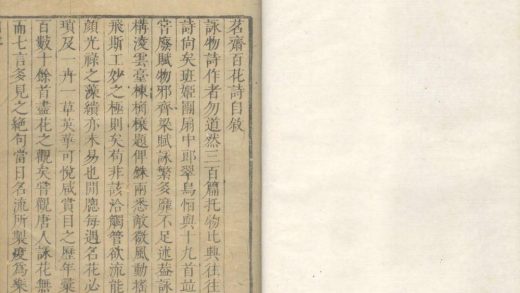 茗齋百花詩自敘
詠物詩作者勿道然三百篇托物比興往往
詩尚矣班姬團扇中郎翠鳥恒與十九首竝
嘗廢賦物邪齊梁賦詠繁多靡不足述蓋詠
構淩雲臺棟桷榱題俾銖兩悉敵微風動搖
飛斯工妙之極則矣苟非該洽觸管欲流能
顏光祿之藻繢亦未易也閒廳每遇名花必
瑣及一卉一草英華可悅咸賞目之歷年彙
百數十餘首盡花之觀矣嘗觀唐人詠花無
而七言多見之絕句當日名流所製度為樂